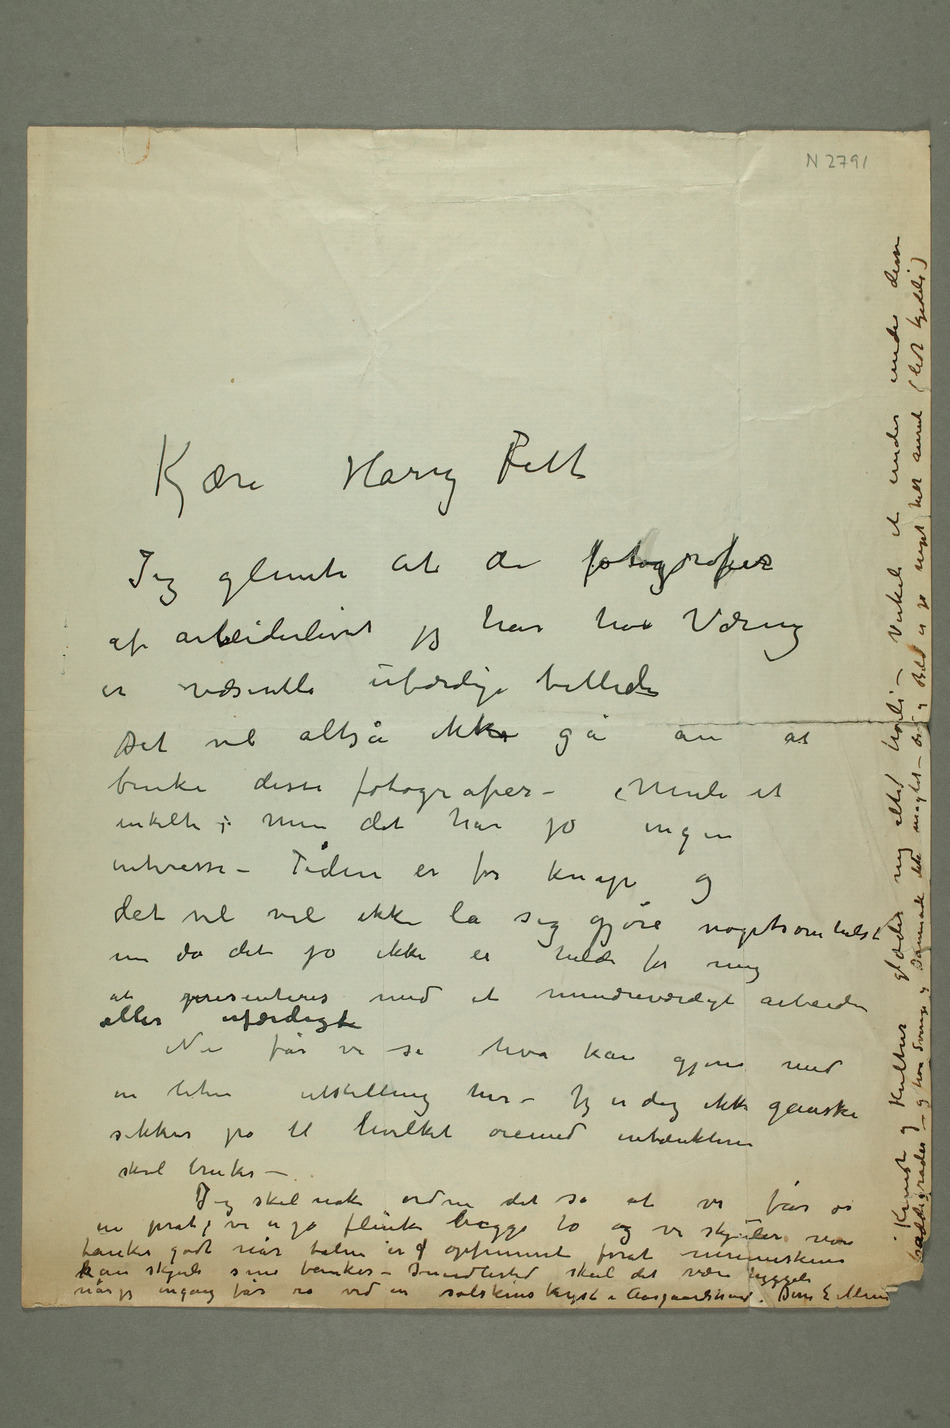 N 2791
Kjære Harry Fett
Jeg glemte at de fotografier
af arbeiderlivet jeg har hos Væring
er væsentlig ufærdige billeder
Det vil altså ikke gå an at
bruke disse fotografier – (Muli et
enkelte; men det har jo ingen
interesse – Tiden er for knap og
det vil vel ikke la sig gjøre nogetsomhelst
nu da det jo ikke er heldi for mig
at presenteres med et mindreværdigt arbeide
eller ufærdigt
Nu får vi se hva kan gjøres med
en liten utstilling her – Jeg er dog ikke ganske
sikker på til hvilket øiemed indtækterne
skal brukes –
Jeg skal nok ordne det så at vi får os
en prat; vi er jo flinke begge to og vi skjuler vore
tanker godt når talen er opfunnet forat menneskene
kan skjule sine tanker – Imidlertid skal det være hyggeli
når jeg engang får ro ved en solskinskyst i Aasgaardstrand. Deres E Munch
Kunst og Kultur glæder mig altid træli – Virkeli et under under disse
bæddigrader – og hos Svenge og Danmark ikke maglet – og Bild er jo noget helt annet (lidt kjedeli)